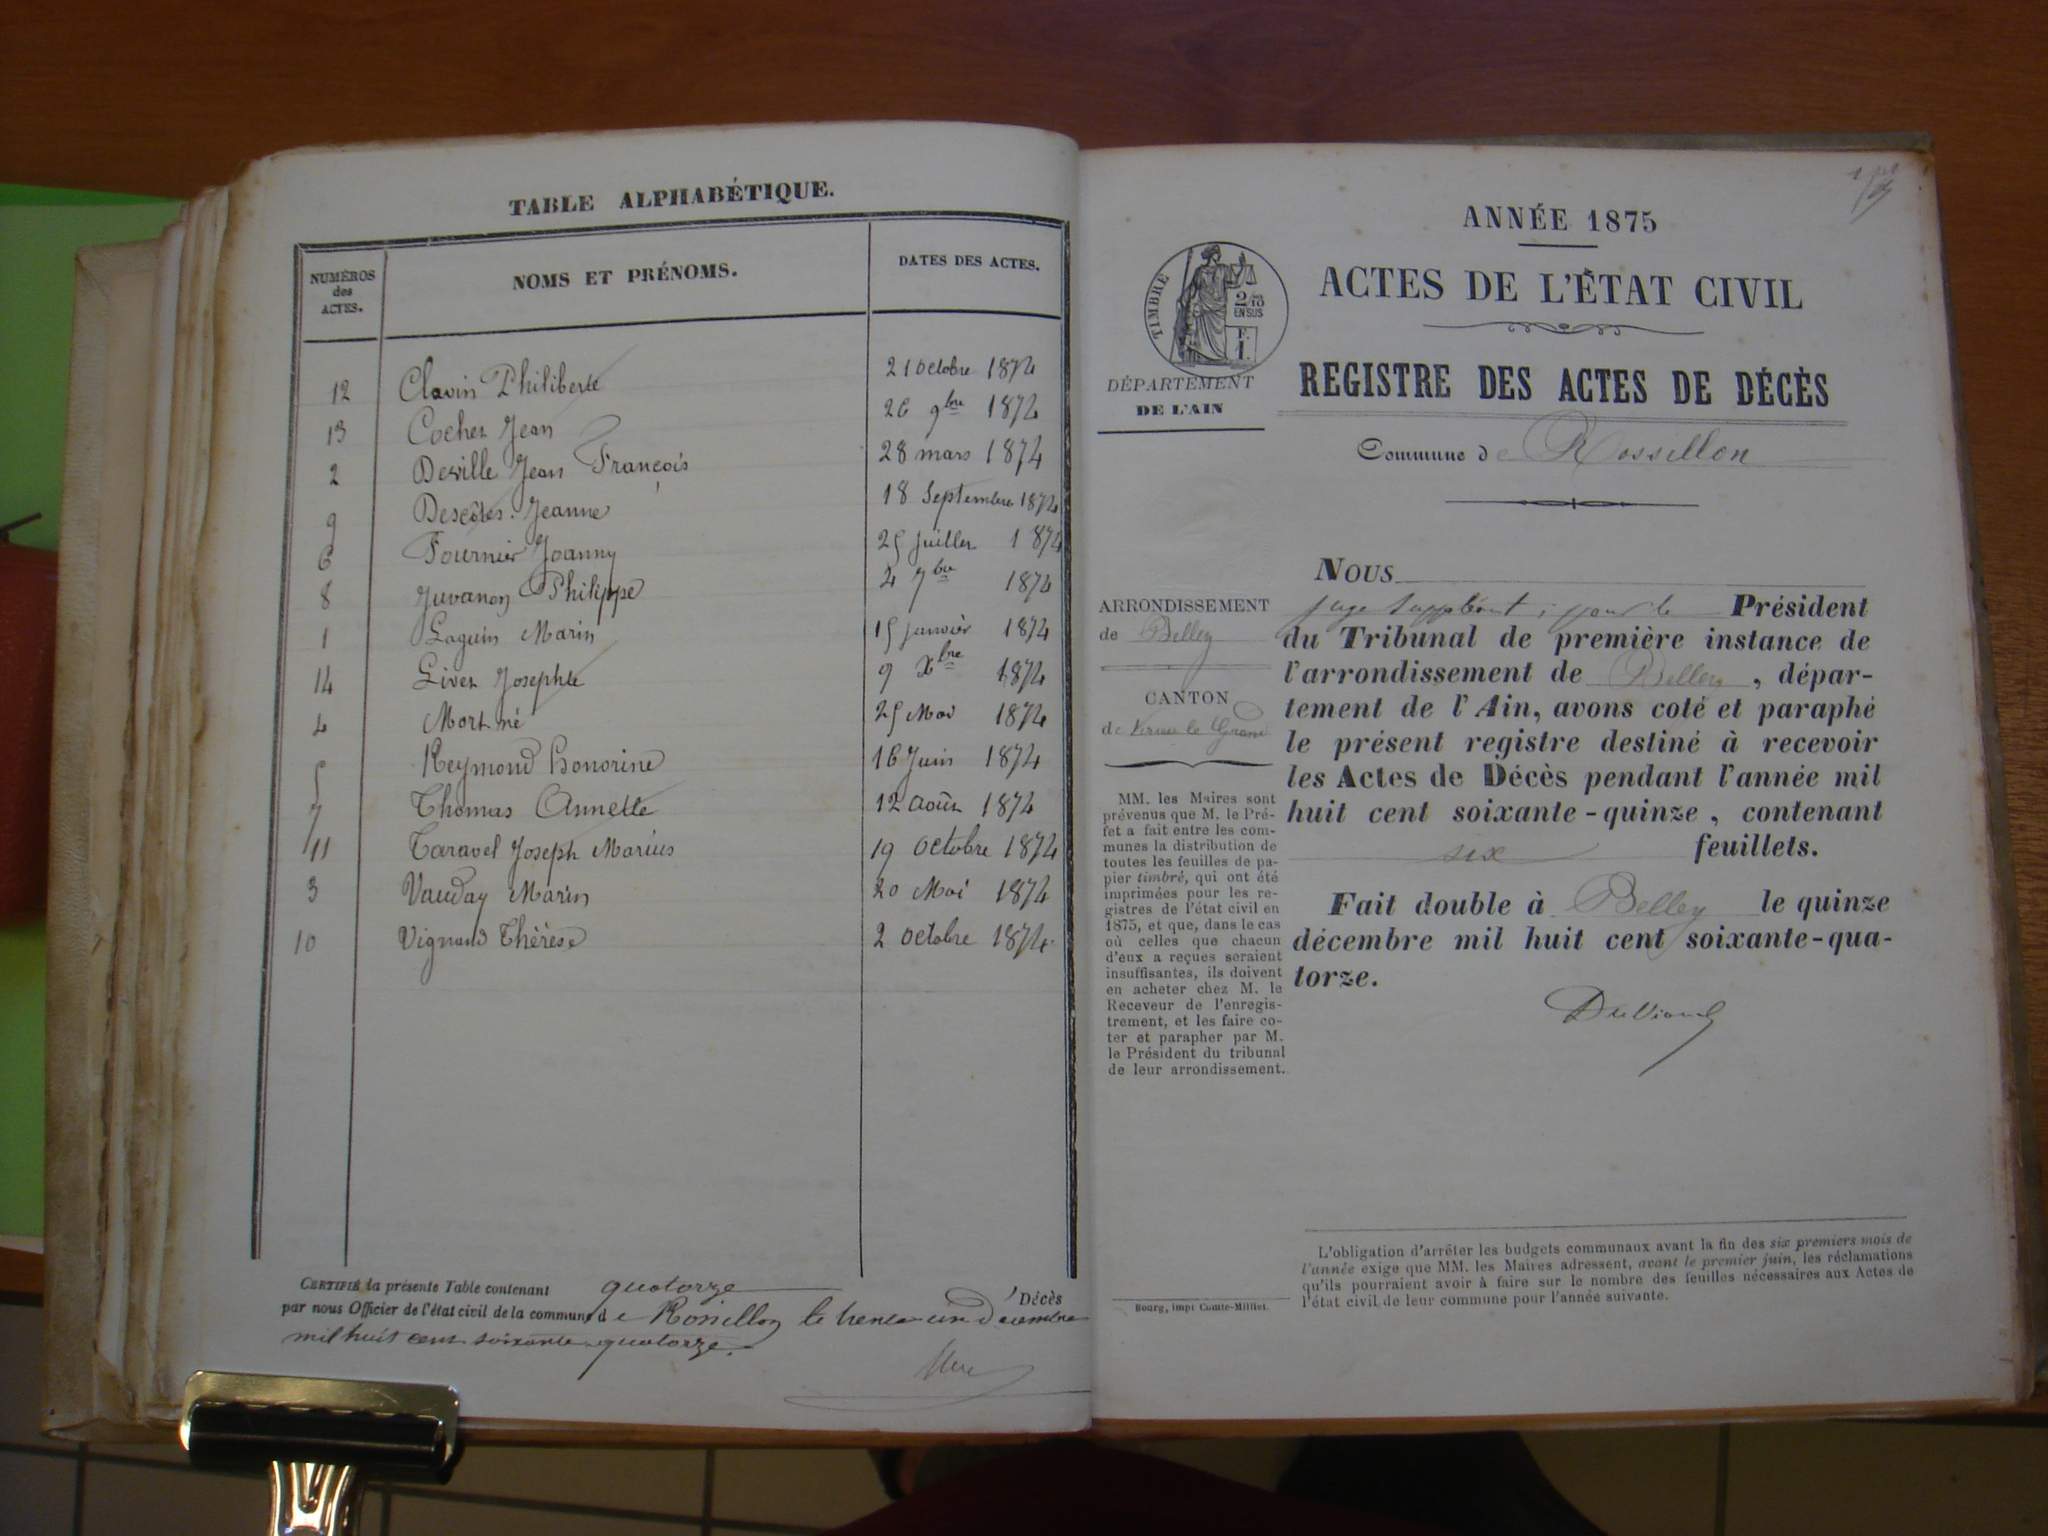 TABLE ALPHABÉTIQUE.
NUMÉROS des ACTES. NOMS ET PRÉNOMS. DATES DES ACTES.
12 Clavin Philiberte 21 octobre 1874
13 Cochet Jean 26 9bre 1874
2 Deville Jean François 28 mars 1874
9 Descôtes Jeanne 18 Septembre 1874
6 Fournier Joanny 25 juillet 1874
8 Juvanon Philippe 4 7bre 1874
1 Laguin Marin 15 janvier 1874
14 Livet Josephte 9 Xbre 1874
4 Mort né 25 Mai 1874
5 Reymond Honorine 16 Juin 1874
7 Thomas Annette 12 août 1874
11 Taravel Joseph Marius 19 octobre 1874
3 Vauday Marin 20 Mai 1874
10 Vignand Thérèse 2 octobre 1874
CERTIFIÉ la présente Table contenant quatorze Décès
par nous Officier de l'état civil de la commune de Rossillon le trente un Décembre
mil huit cent soixante quatorze.
ANNÉE 1875
ACTES DE L'ÉTAT CIVIL
TIMBRE
2/10 EN SUS
F. 1.
DÉPARTEMENT
DE L'AIN
REGISTRE DES ACTES DE DÉCÈS
Commune de Rossillon
ARRONDISSEMENT
de Belley
CANTON
de Virieu le Grand
MM. les Maires sont
prévenus que M. le Pré-
fet a fait entre les com-
munes la distribution de
toutes les feuilles de pa-
pier timbré, qui ont été
imprimées pour les re-
gistres de l'état civil en
1875, et que, dans le cas
où celles que chacun
d'eux a reçues seraient
insuffisantes, ils doivent
en acheter chez M. le
Receveur de l'enregis-
trement, et les faire co-
ter et parapher par M.
le Président du tribunal
de leur arrondissement.
NOUS
juge suppléant, pour le Président
du Tribunal de première instance de
l'arrondissement de Belley, dépar-
tement de l'Ain, avons coté et paraphé
le présent registre destiné à recevoir
les Actes de Décès pendant l'année mil
huit cent soixante-quinze, contenant
six feuillets.
Fait double à Belley le quinze
décembre mil huit cent soixante-qua-
torze.
L'obligation d'arrêter les budgets communaux avant la fin des six premiers mois de
l'année exige que MM. les Maires adressent, avant le premier juin, les réclamations
qu'ils pourraient avoir à faire sur le nombre des feuilles nécessaires aux Actes de
l'état civil de leur commune pour l'année suivante.
Bourg, impr Comte-Milliet.